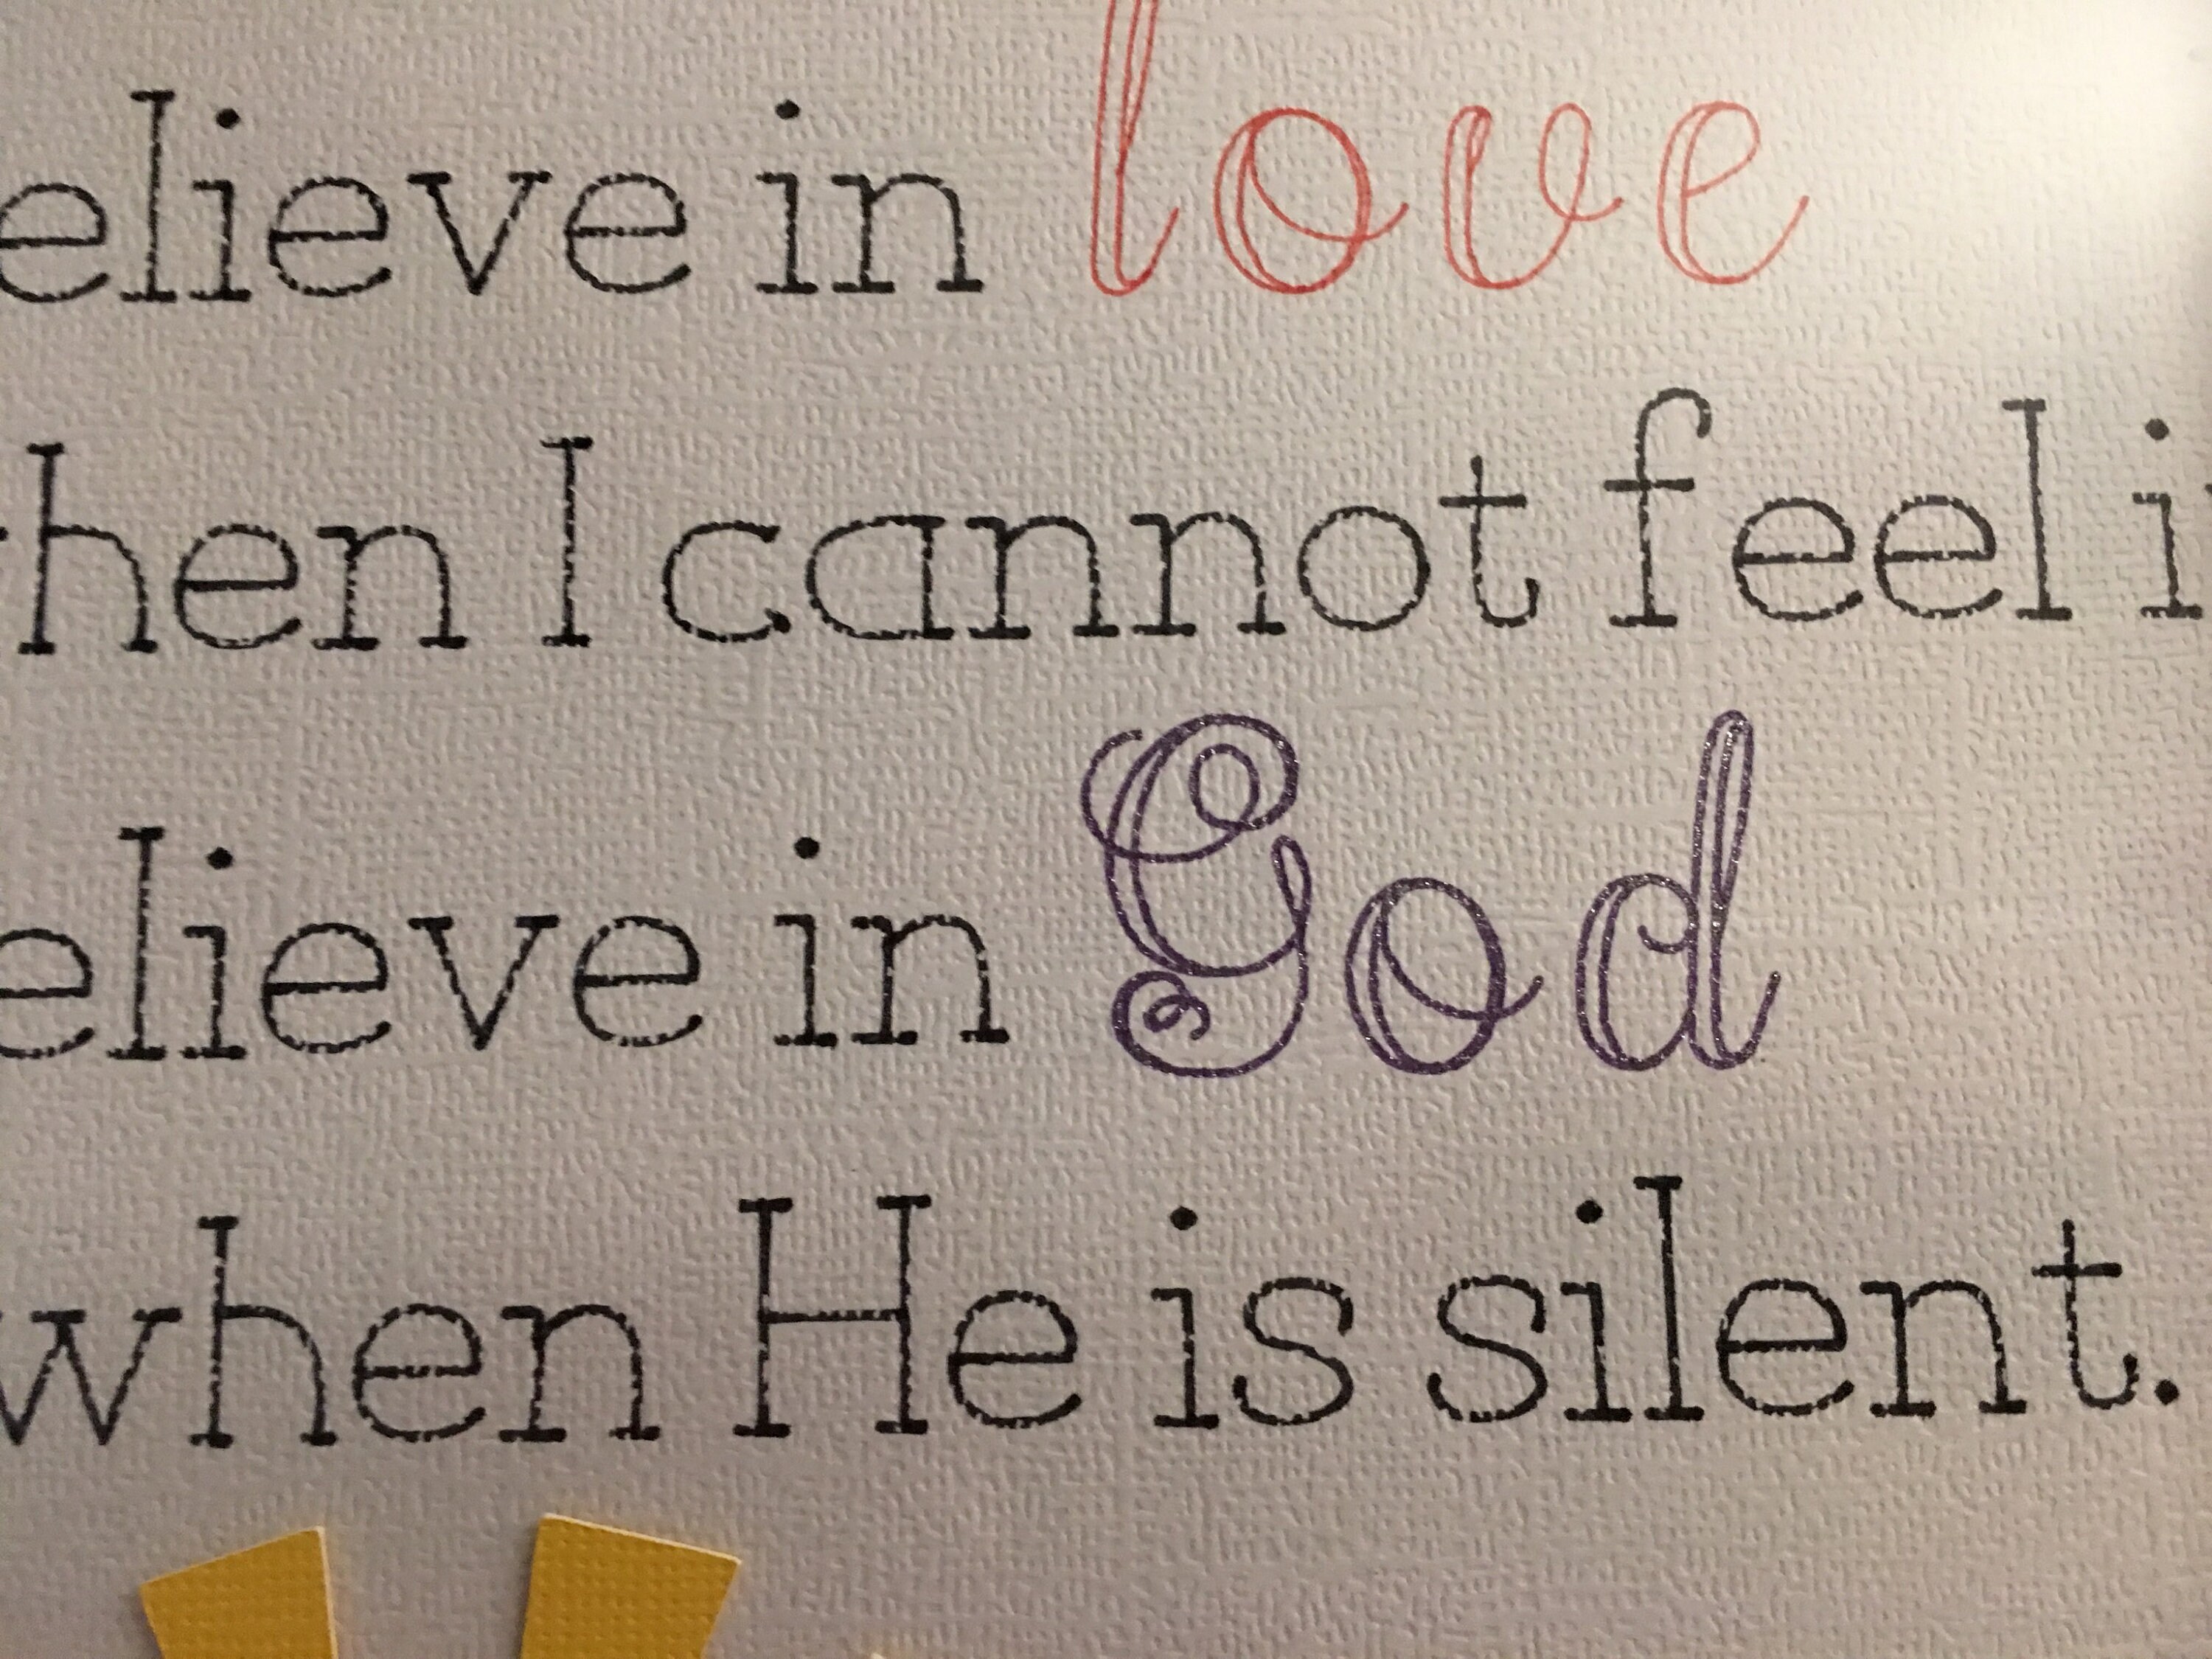 elieve in love
hen I cannot feel i
elieve in God
when He is silent.